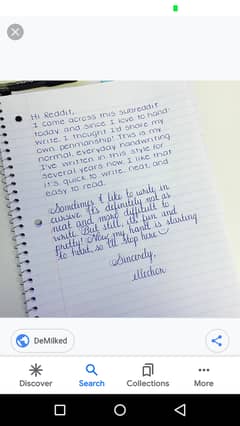 Hi Reddit,
I came across this subreddit
today and since I love to hand-
write, I thought I'd share my
own penmanship! This is my
normal everyday handwriting.
I've written in this style for
several years now. I like that
it's quick to write, neat, and
easy to read.
Sometimes, I like to write in
cursive. It's definitely not as
neat and more difficult to
write. But still, it's fun and
pretty! Now my hand is starting
to hurt, so I'll stop here
Sincerely,
DeMilked
Discover
Search
Collections
More